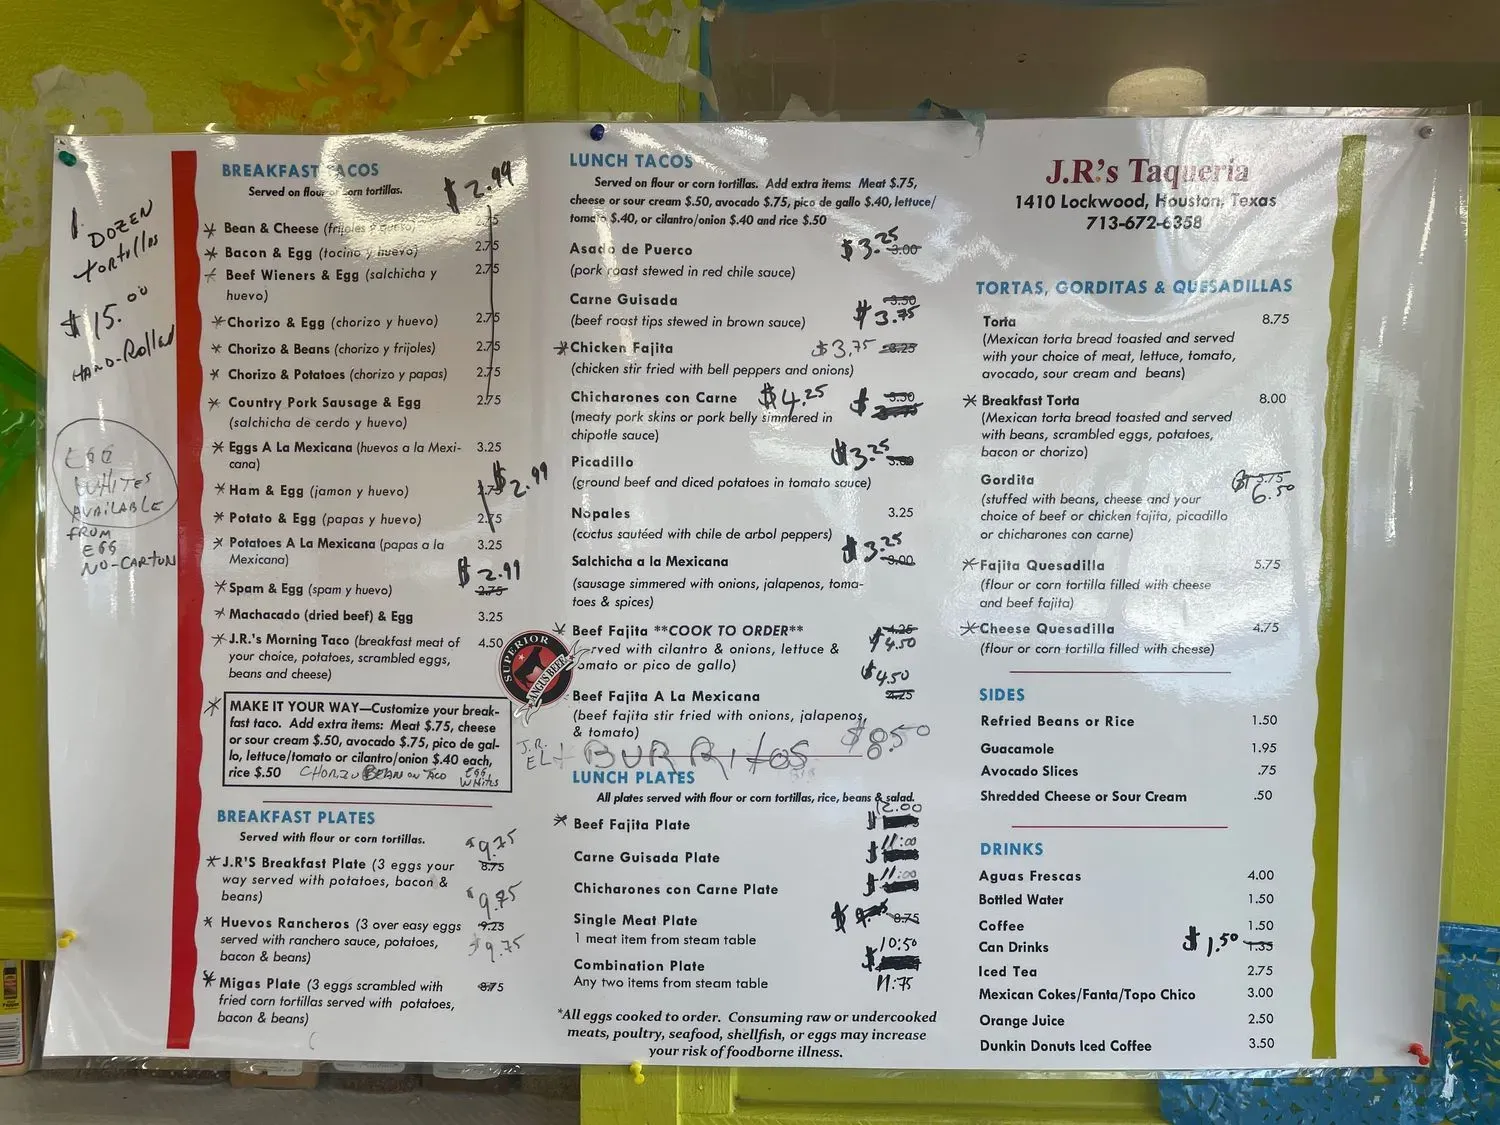 1 DOZEN
tortillas
$15.00
HAND-Rolled
EGG
WHITES
AVAILABLE
FROM
EGG
NO-CARTON
BREAKFAST TACOS
Served on flour or corn tortillas.
$2.99
* Bean & Cheese (frijoles y queso) 2.75
* Bacon & Egg (tocino y huevo) 2.75
* Beef Wieners & Egg (salchicha y 2.75
huevo)
* Chorizo & Egg (chorizo y huevo) 2.75
* Chorizo & Beans (chorizo y frijoles) 2.75
* Chorizo & Potatoes (chorizo y papas) 2.75
* Country Pork Sausage & Egg 2.75
(salchicha de cerdo y huevo)
* Eggs A La Mexicana (huevos a la Mexi- 3.25
cana)
* Ham & Egg (jamon y huevo) 2.75 $2.99
* Potato & Egg (papas y huevo) 2.75
* Potatoes A La Mexicana (papas a la 3.25
Mexicana)
$2.99
* Spam & Egg (spam y huevo) 2.75
* Machacado (dried beef) & Egg 3.25
* J.R.'s Morning Taco (breakfast meat of 4.50
your choice, potatoes, scrambled eggs,
beans and cheese)
* MAKE IT YOUR WAY—Customize your break-
fast taco. Add extra items: Meat $.75, cheese
or sour cream $.50, avocado $.75, pico de gal-
lo, lettuce/tomato or cilantro/onion $.40 each,
rice $.50 CHORIZO BEAN on TACO EGG
WHITES
BREAKFAST PLATES
Served with flour or corn tortillas.
$9.75
* J.R'S Breakfast Plate (3 eggs your 8.75
way served with potatoes, bacon &
beans)
$9.75
* Huevos Rancheros (3 over easy eggs 9.25
served with ranchero sauce, potatoes, $9.75
bacon & beans)
* Migas Plate (3 eggs scrambled with 8.75
fried corn tortillas served with potatoes,
bacon & beans)
SUPERIOR
ANGUS BEEF
LUNCH TACOS
Served on flour or corn tortillas. Add extra items: Meat $.75,
cheese or sour cream $.50, avocado $.75, pico de gallo $.40, lettuce/
tomato $.40, or cilantro/onion $.40 and rice $.50
Asado de Puerco $3.25 3.00
(pork roast stewed in red chile sauce)
Carne Guisada 3.50
(beef roast tips stewed in brown sauce) $3.75
* Chicken Fajita $3.75 3.25
(chicken stir fried with bell peppers and onions)
Chicharones con Carne $4.25 $ 3.50
(meaty pork skins or pork belly simmered in
chipotle sauce)
Picadillo $3.25 3.00
(ground beef and diced potatoes in tomato sauce)
Nopales 3.25
(cactus sautéed with chile de arbol peppers)
Salchicha a la Mexicana $3.25 3.00
(sausage simmered with onions, jalapenos, toma-
toes & spices)
* Beef Fajita **COOK TO ORDER** 4.25
rved with cilantro & onions, lettuce & $4.50
omato or pico de gallo)
$4.50
Beef Fajita A La Mexicana 4.25
(beef fajita stir fried with onions, jalapenos,
& tomato)
J.R. BURRITOS $8.50
LUNCH PLATES
All plates served with flour or corn tortillas, rice, beans & salad.
12.00
* Beef Fajita Plate $
11:00
Carne Guisada Plate $
11:00
Chicharones con Carne Plate $
Single Meat Plate $ 8.75
1 meat item from steam table 10:50
Combination Plate $
Any two items from steam table 11:75
*All eggs cooked to order. Consuming raw or undercooked
meats, poultry, seafood, shellfish, or eggs may increase
your risk of foodborne illness.
J.R.'s Taqueria
1410 Lockwood, Houston, Texas
713-672-6358
TORTAS, GORDITAS & QUESADILLAS
Torta 8.75
(Mexican torta bread toasted and served
with your choice of meat, lettuce, tomato,
avocado, sour cream and beans)
* Breakfast Torta 8.00
(Mexican torta bread toasted and served
with beans, scrambled eggs, potatoes,
bacon or chorizo)
Gordita 5.75
(stuffed with beans, cheese and your 6.50
choice of beef or chicken fajita, picadillo
or chicharones con carne)
* Fajita Quesadilla 5.75
(flour or corn tortilla filled with cheese
and beef fajita)
* Cheese Quesadilla 4.75
(flour or corn tortilla filled with cheese)
SIDES
Refried Beans or Rice 1.50
Guacamole 1.95
Avocado Slices .75
Shredded Cheese or Sour Cream .50
DRINKS
Aguas Frescas 4.00
Bottled Water 1.50
Coffee 1.50
Can Drinks $1.50 1.35
Iced Tea 2.75
Mexican Cokes/Fanta/Topo Chico 3.00
Orange Juice 2.50
Dunkin Donuts Iced Coffee 3.50